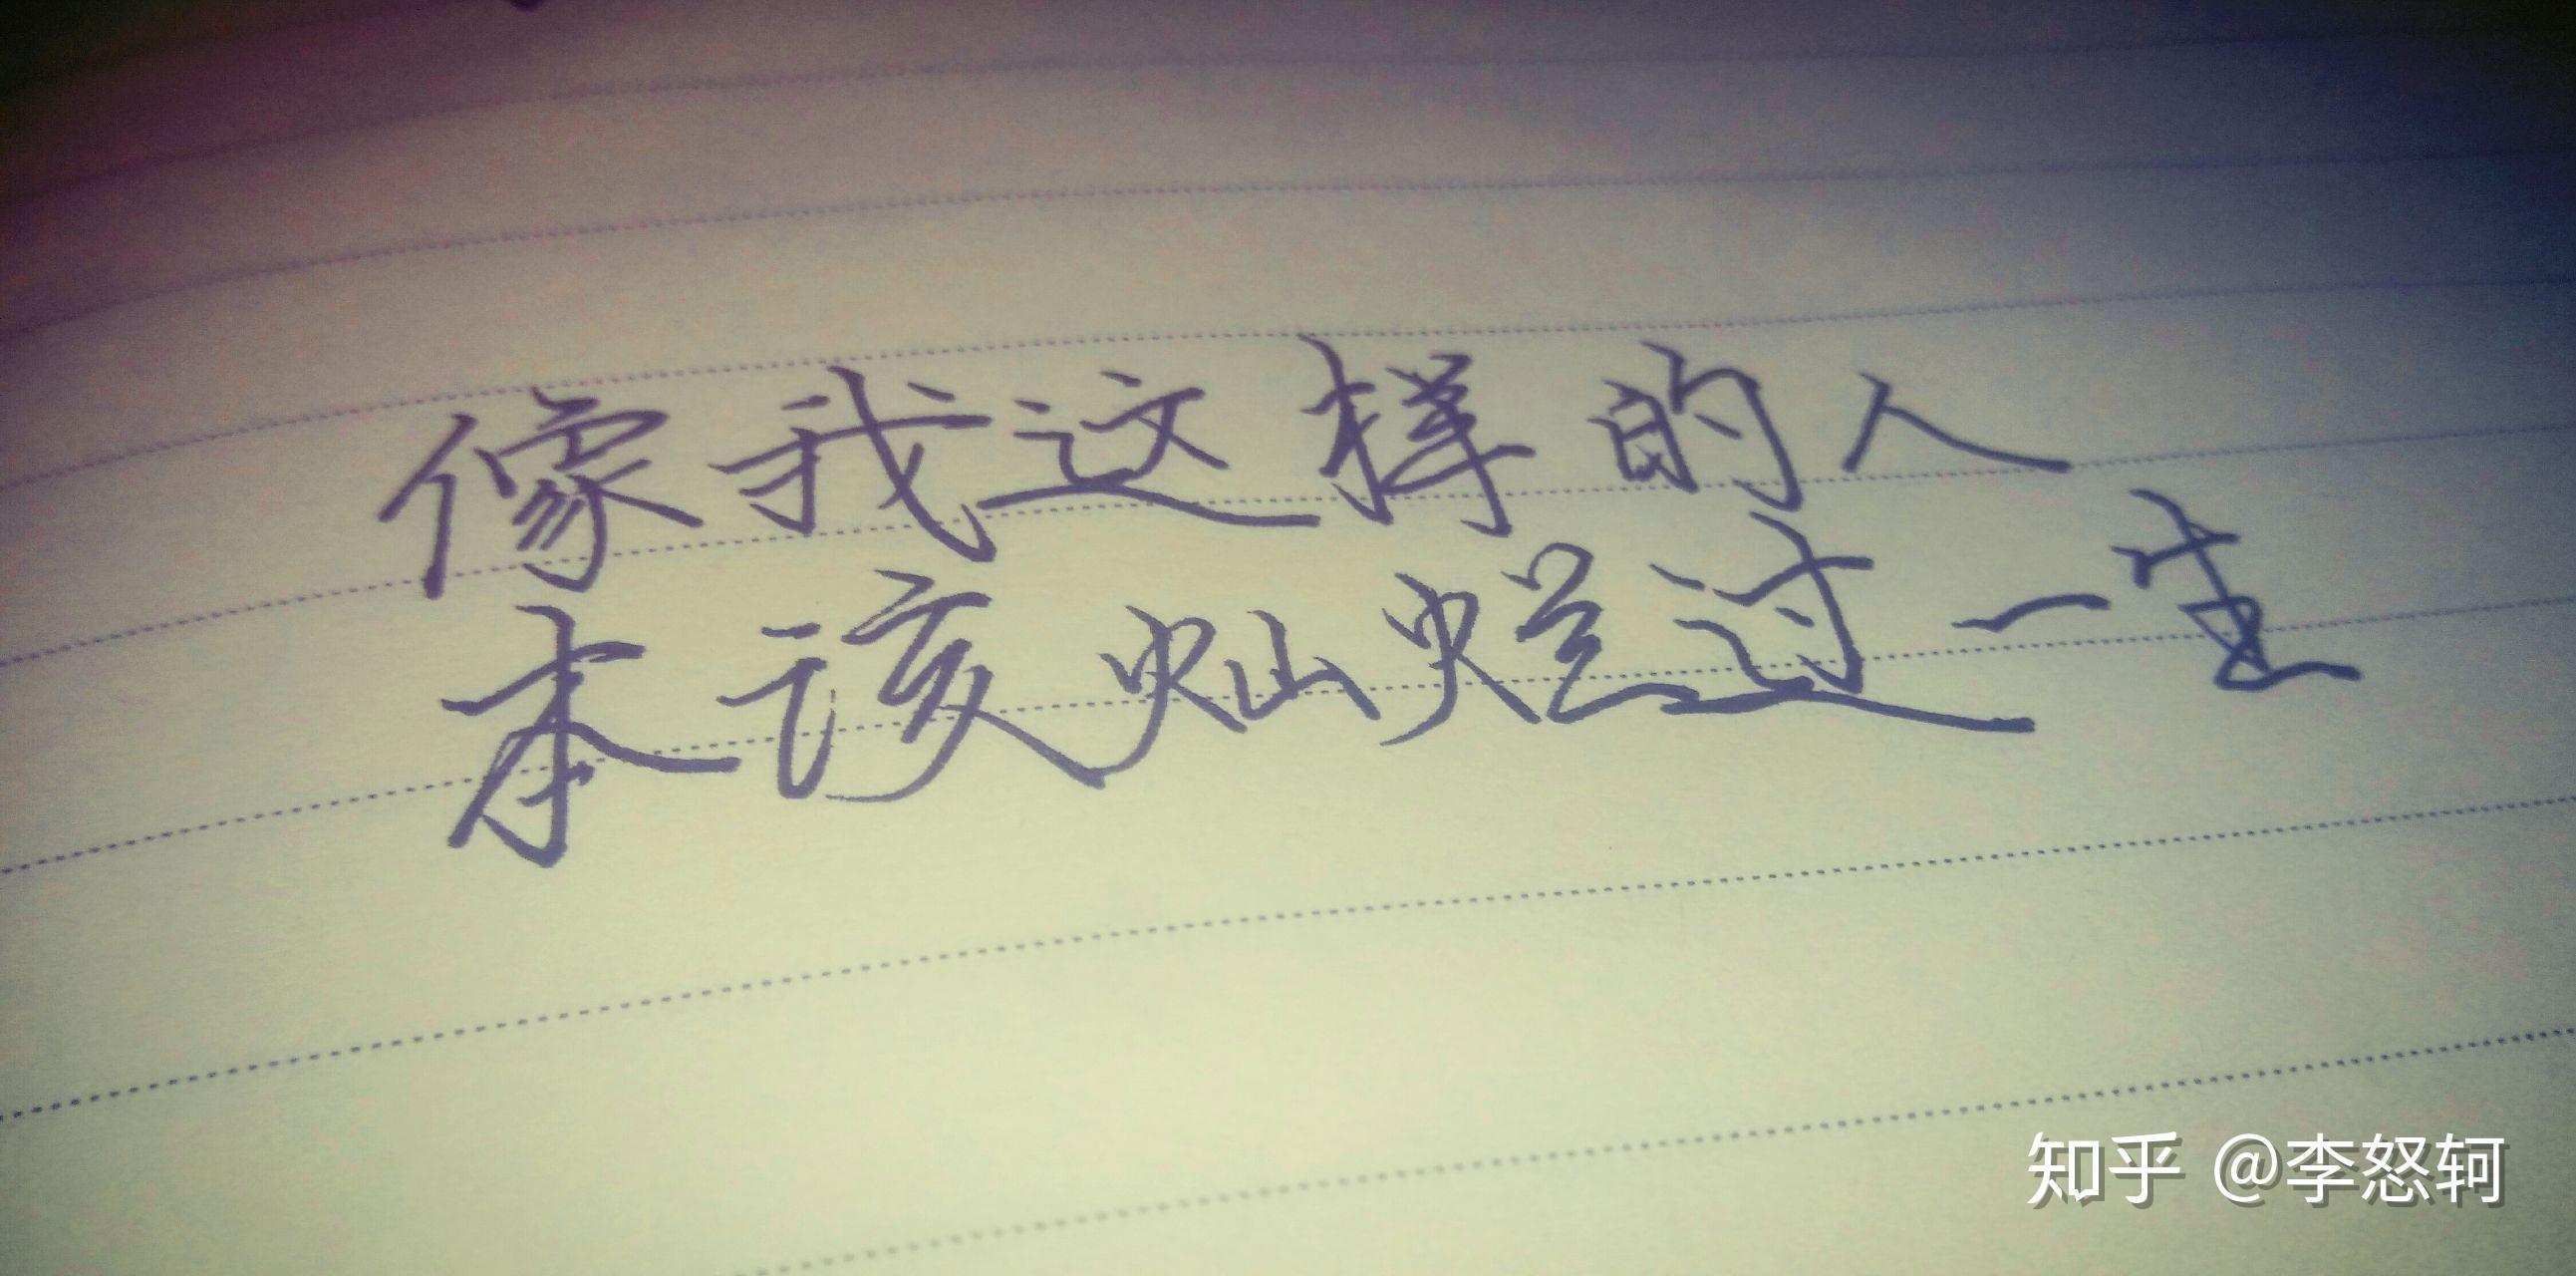 像我这样的人
本该灿烂过一生
知乎 @李怒轲